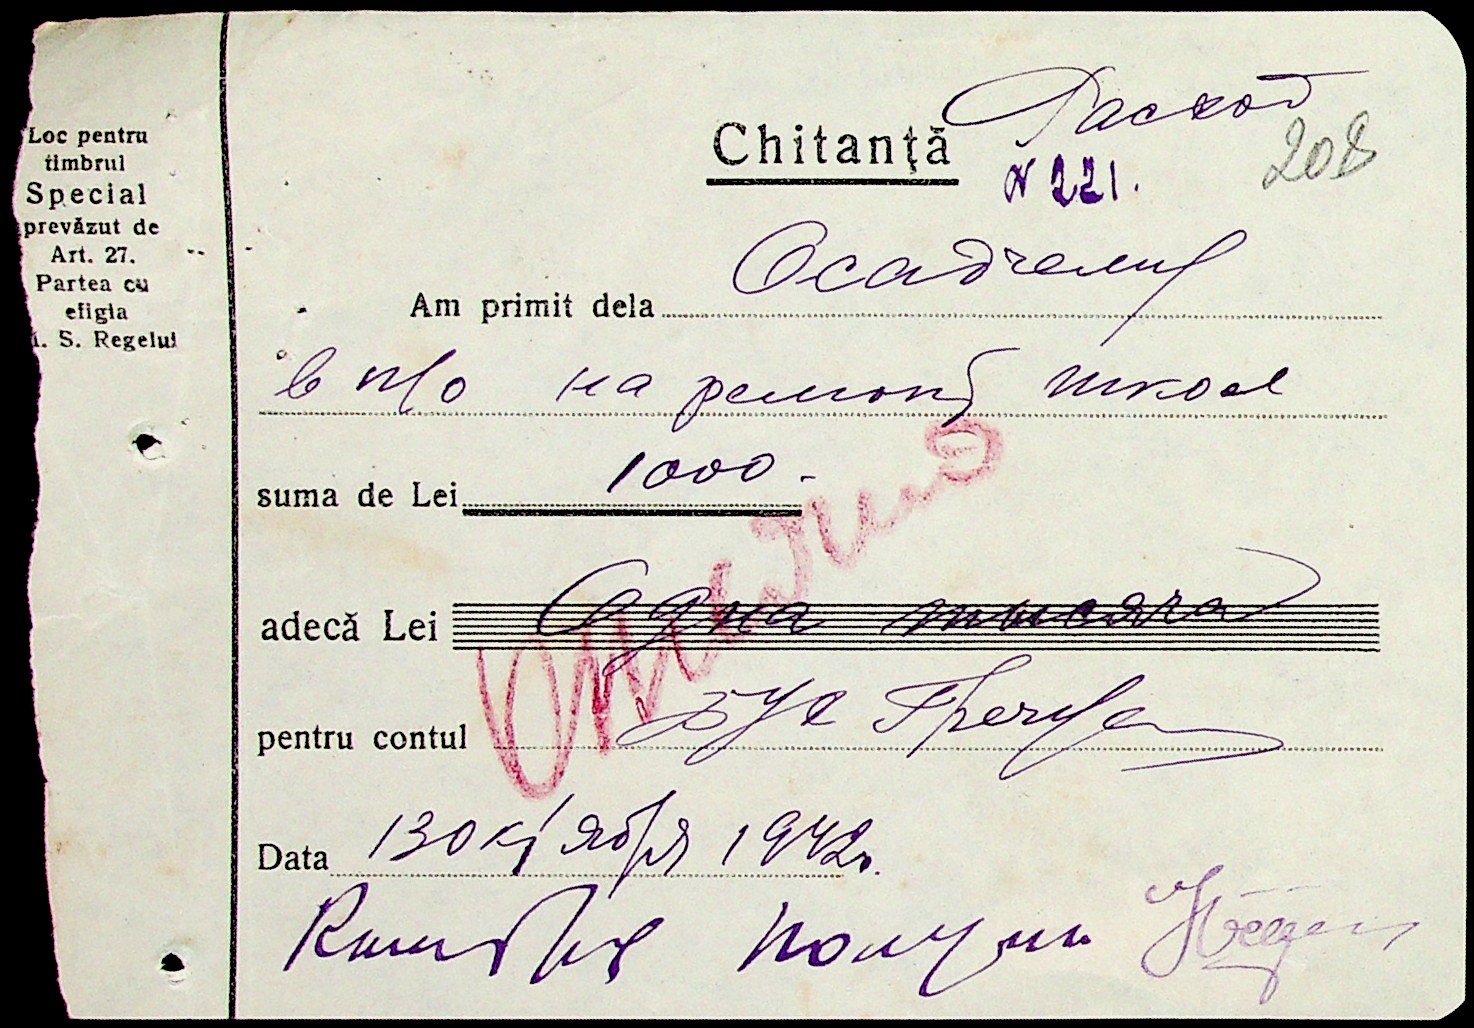 Loc pentru
timbrul
Special
prevăzut de
Art. 27.
Partea cu
efigia
. S. Regelui
Расход
Chitanță
№ 221.
208
Am primit dela Осадчему
в п/о на ремонт школ
suma de Lei 1000.-
adecă Lei Одна тысяча
pentru contul
Data 13 октября 1942.
получил